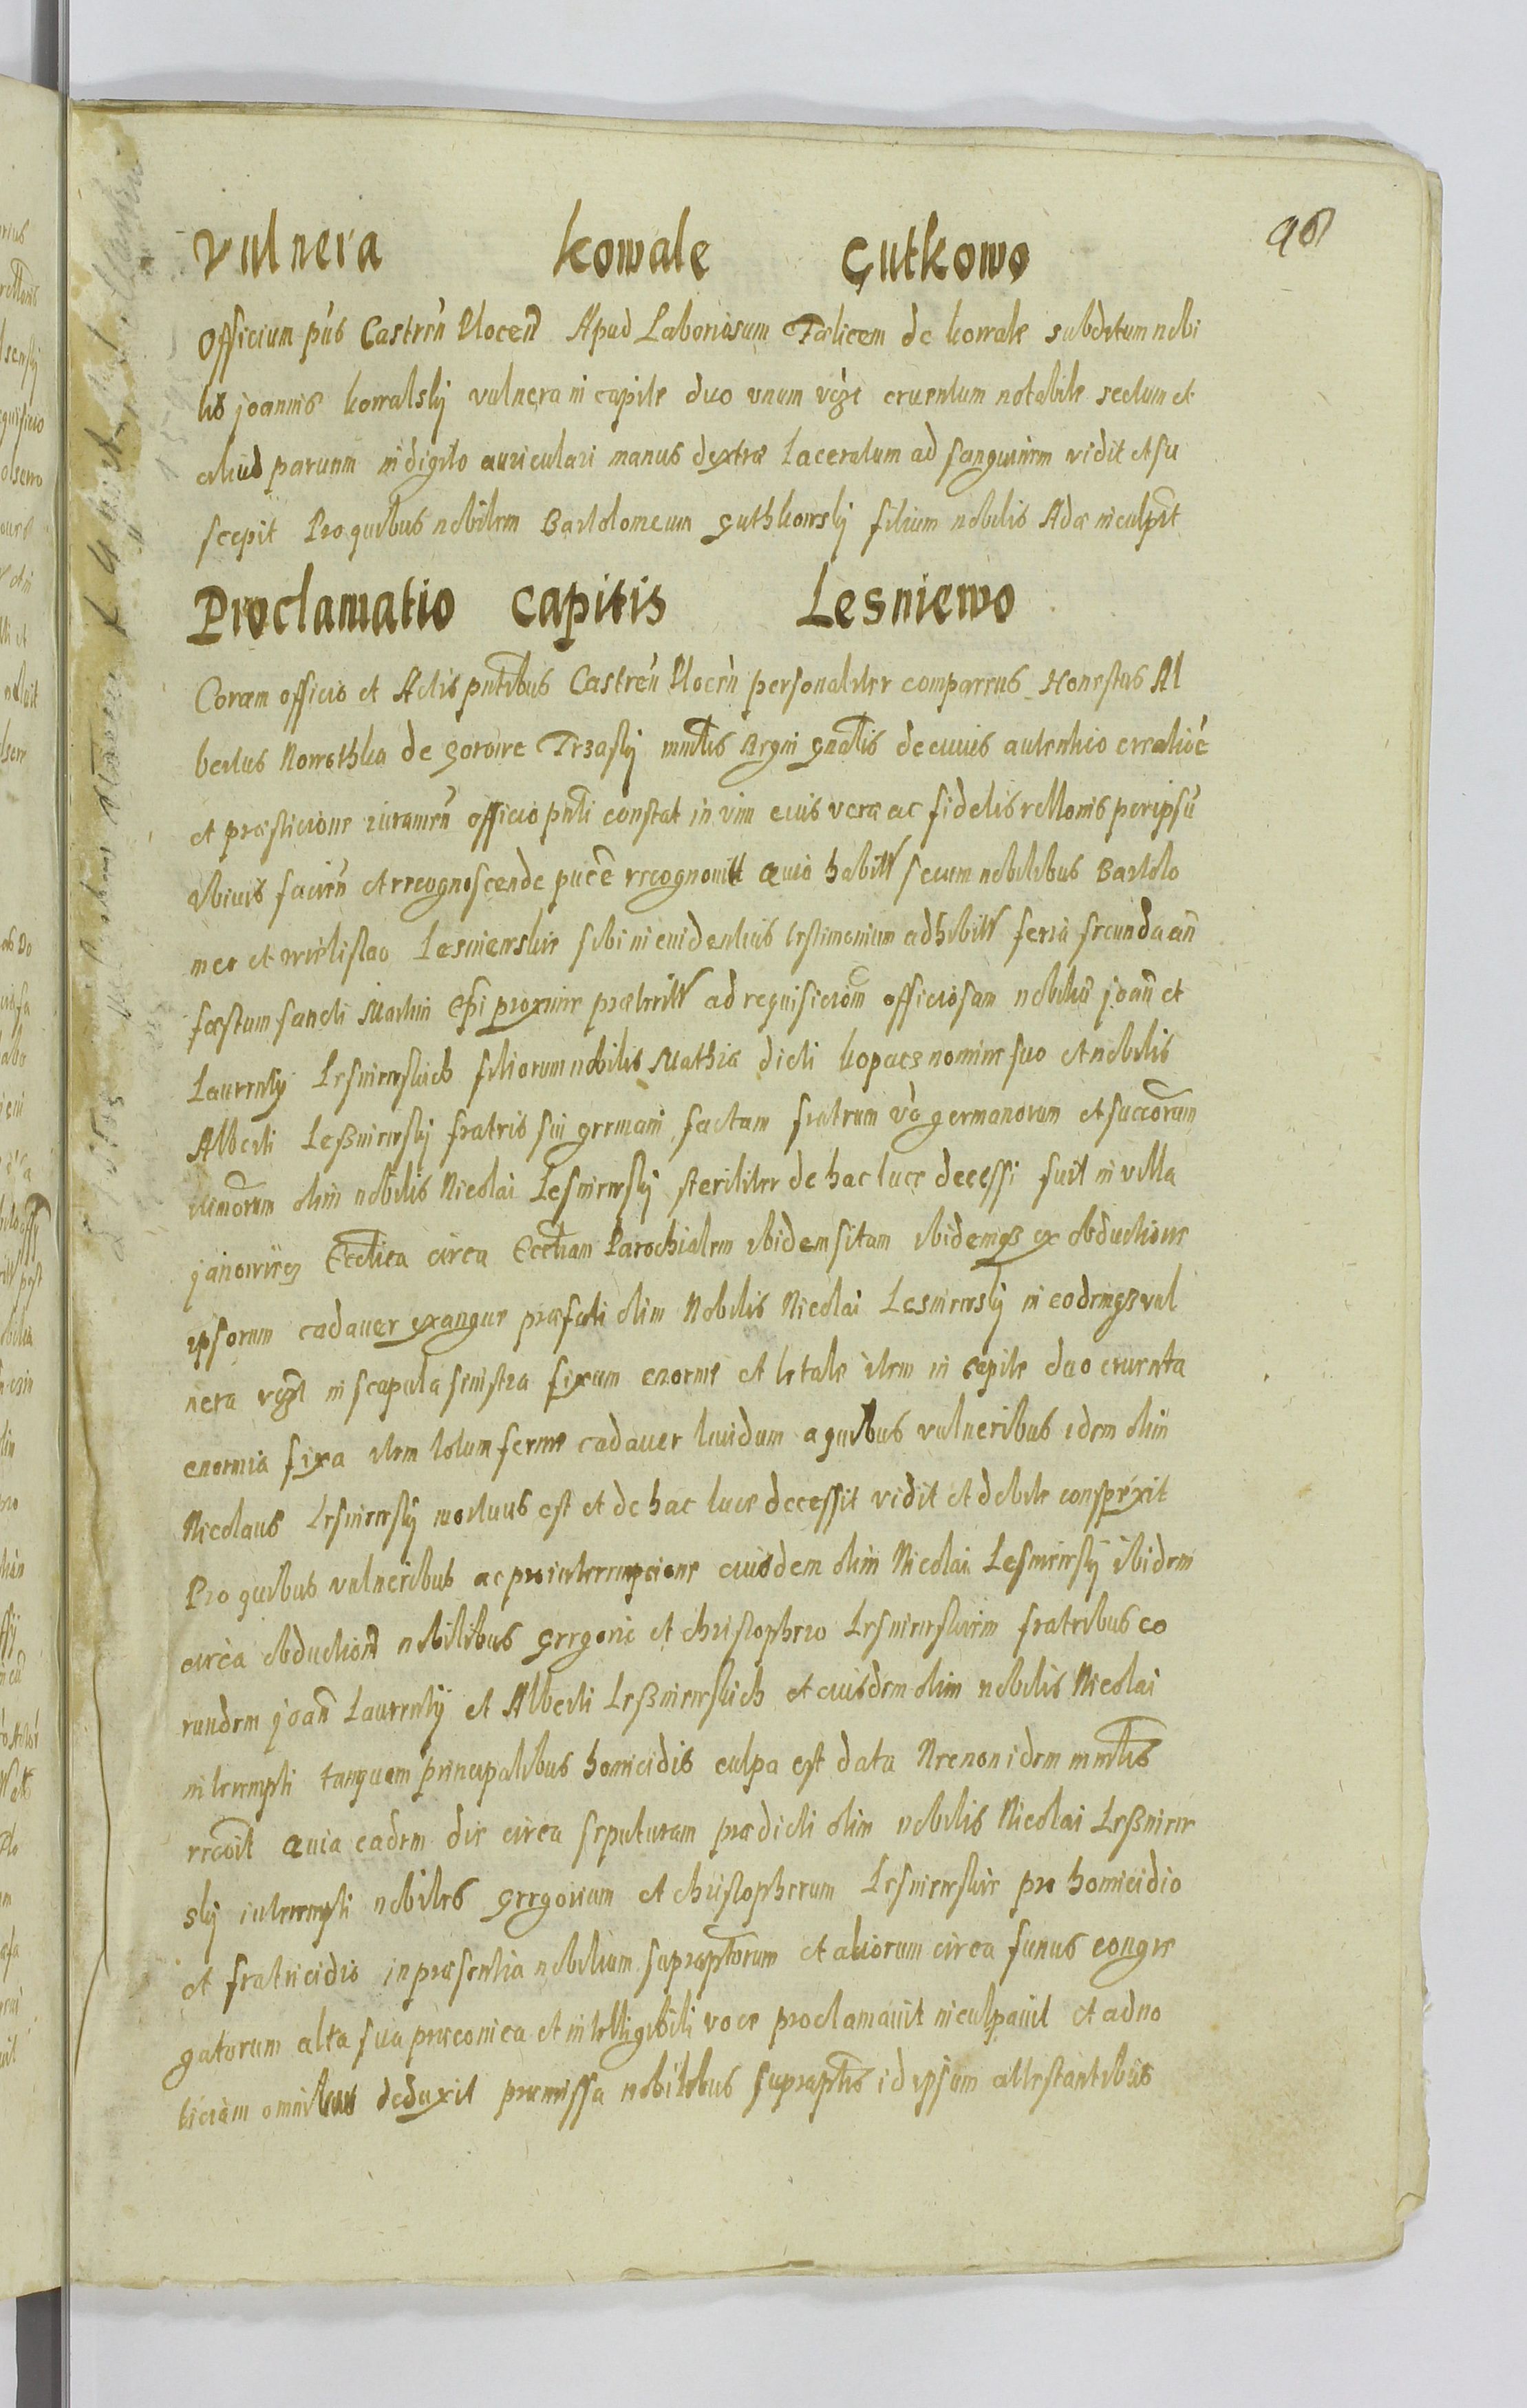 98
Vulnera Kowale Gutkowo
Officium pñs Castreñ Plocen̄ Apud Laboriosum Fælicem de kowale subditum nobi
lis joannis kowalskij vulnera in capite duo vnum vȝt cruentum notabile sectum et
aliud paruum in digito auriculari manus dextræ laceratum ad sanguinem vidit et su
scepit Pro quibus nobilem Bartolomeum Guthkowskij filium nobilis Adæ inculpat
Proclamatio Capitis Lesniewo
Coram officio et Actis pñtibus Castreñ Plocen̄ personaliter comparens Honestus Al
bertus Nowothka de Gorowe Trzasky mnr̄lis Regni gnālis de cuius autentico creatiōe
et præsticione iuramen̄ officio pñti constat in vim eius veræ ac fidelis rellonis per ipsū
vbiuis facien̄ et recognoscende puc̄e recognouit Quia habitꝭ secum nobilibus Bartolo
meo et wielislao Lesniewskie sibi in euidentius testimonium adhibitꝭ feria secunda an̄
fæstum sancti Martini Ep̄i proxime præteritꝭ ad requisiciōm officiosam nobiliū joan̄ et
Laurentij Lesniewskich filiorum nobilis Mathiæ dicti kopacz nomine suo et nobilis
Alberti Leßniewskij fratris sui germani factam fratrum v̄o germanorum et succōrum
vlimōrum olim nobilis Nicolai Lesniewskij steriliter de hac luce decessi fuit in villa
janowiecz Ecclīca circa Eccl̄iam Parochialem ibidem sitam ibidemqȝ ex obductione
ipsorum cadauer exangue præfati olim Nobilis Nicolai Lesniewskij in eodemqȝ vul
nera vȝt in scapula sinistra fixum enorme et letale item in capite duo cruenta
enormia fixa item totum ferme cadauer liuidum a quibus vulneribus idem olim
Nicolaus Lesniewskij mortuus est et de hac luce decessit vidit et debite conspexit
Pro quibus vulneribus ac pro interempcione eiusdem olim Nicolai Lesniewskij ibidem
circa obduction̄ nobilibus Gregorio et christophero Lesniewskiem fratribus eo
rundem joan̄ Laurentij et Alberti Leßniewskich et eiusdem olim nobilis Nicolai
interempti tanquam principalibus homicidis culpa est data Necnon idem mnr̄lis
recōit Quia eadem die circa sepulturam prædicti olim nobilis Nicolai Leßniew
skij interempti nobiles Gregorium et christopherum Lesniewskie pro homicidio
et fratricidio in præsentia nobilium supraptōrum et aliorum circa funus congre
gatorum alta sua præconica et intelligibili voce proclamauit inculpauit et ad no
ticiam omnibus deduxit præmissa nobilibus supraptīs id ipsum attestantibus